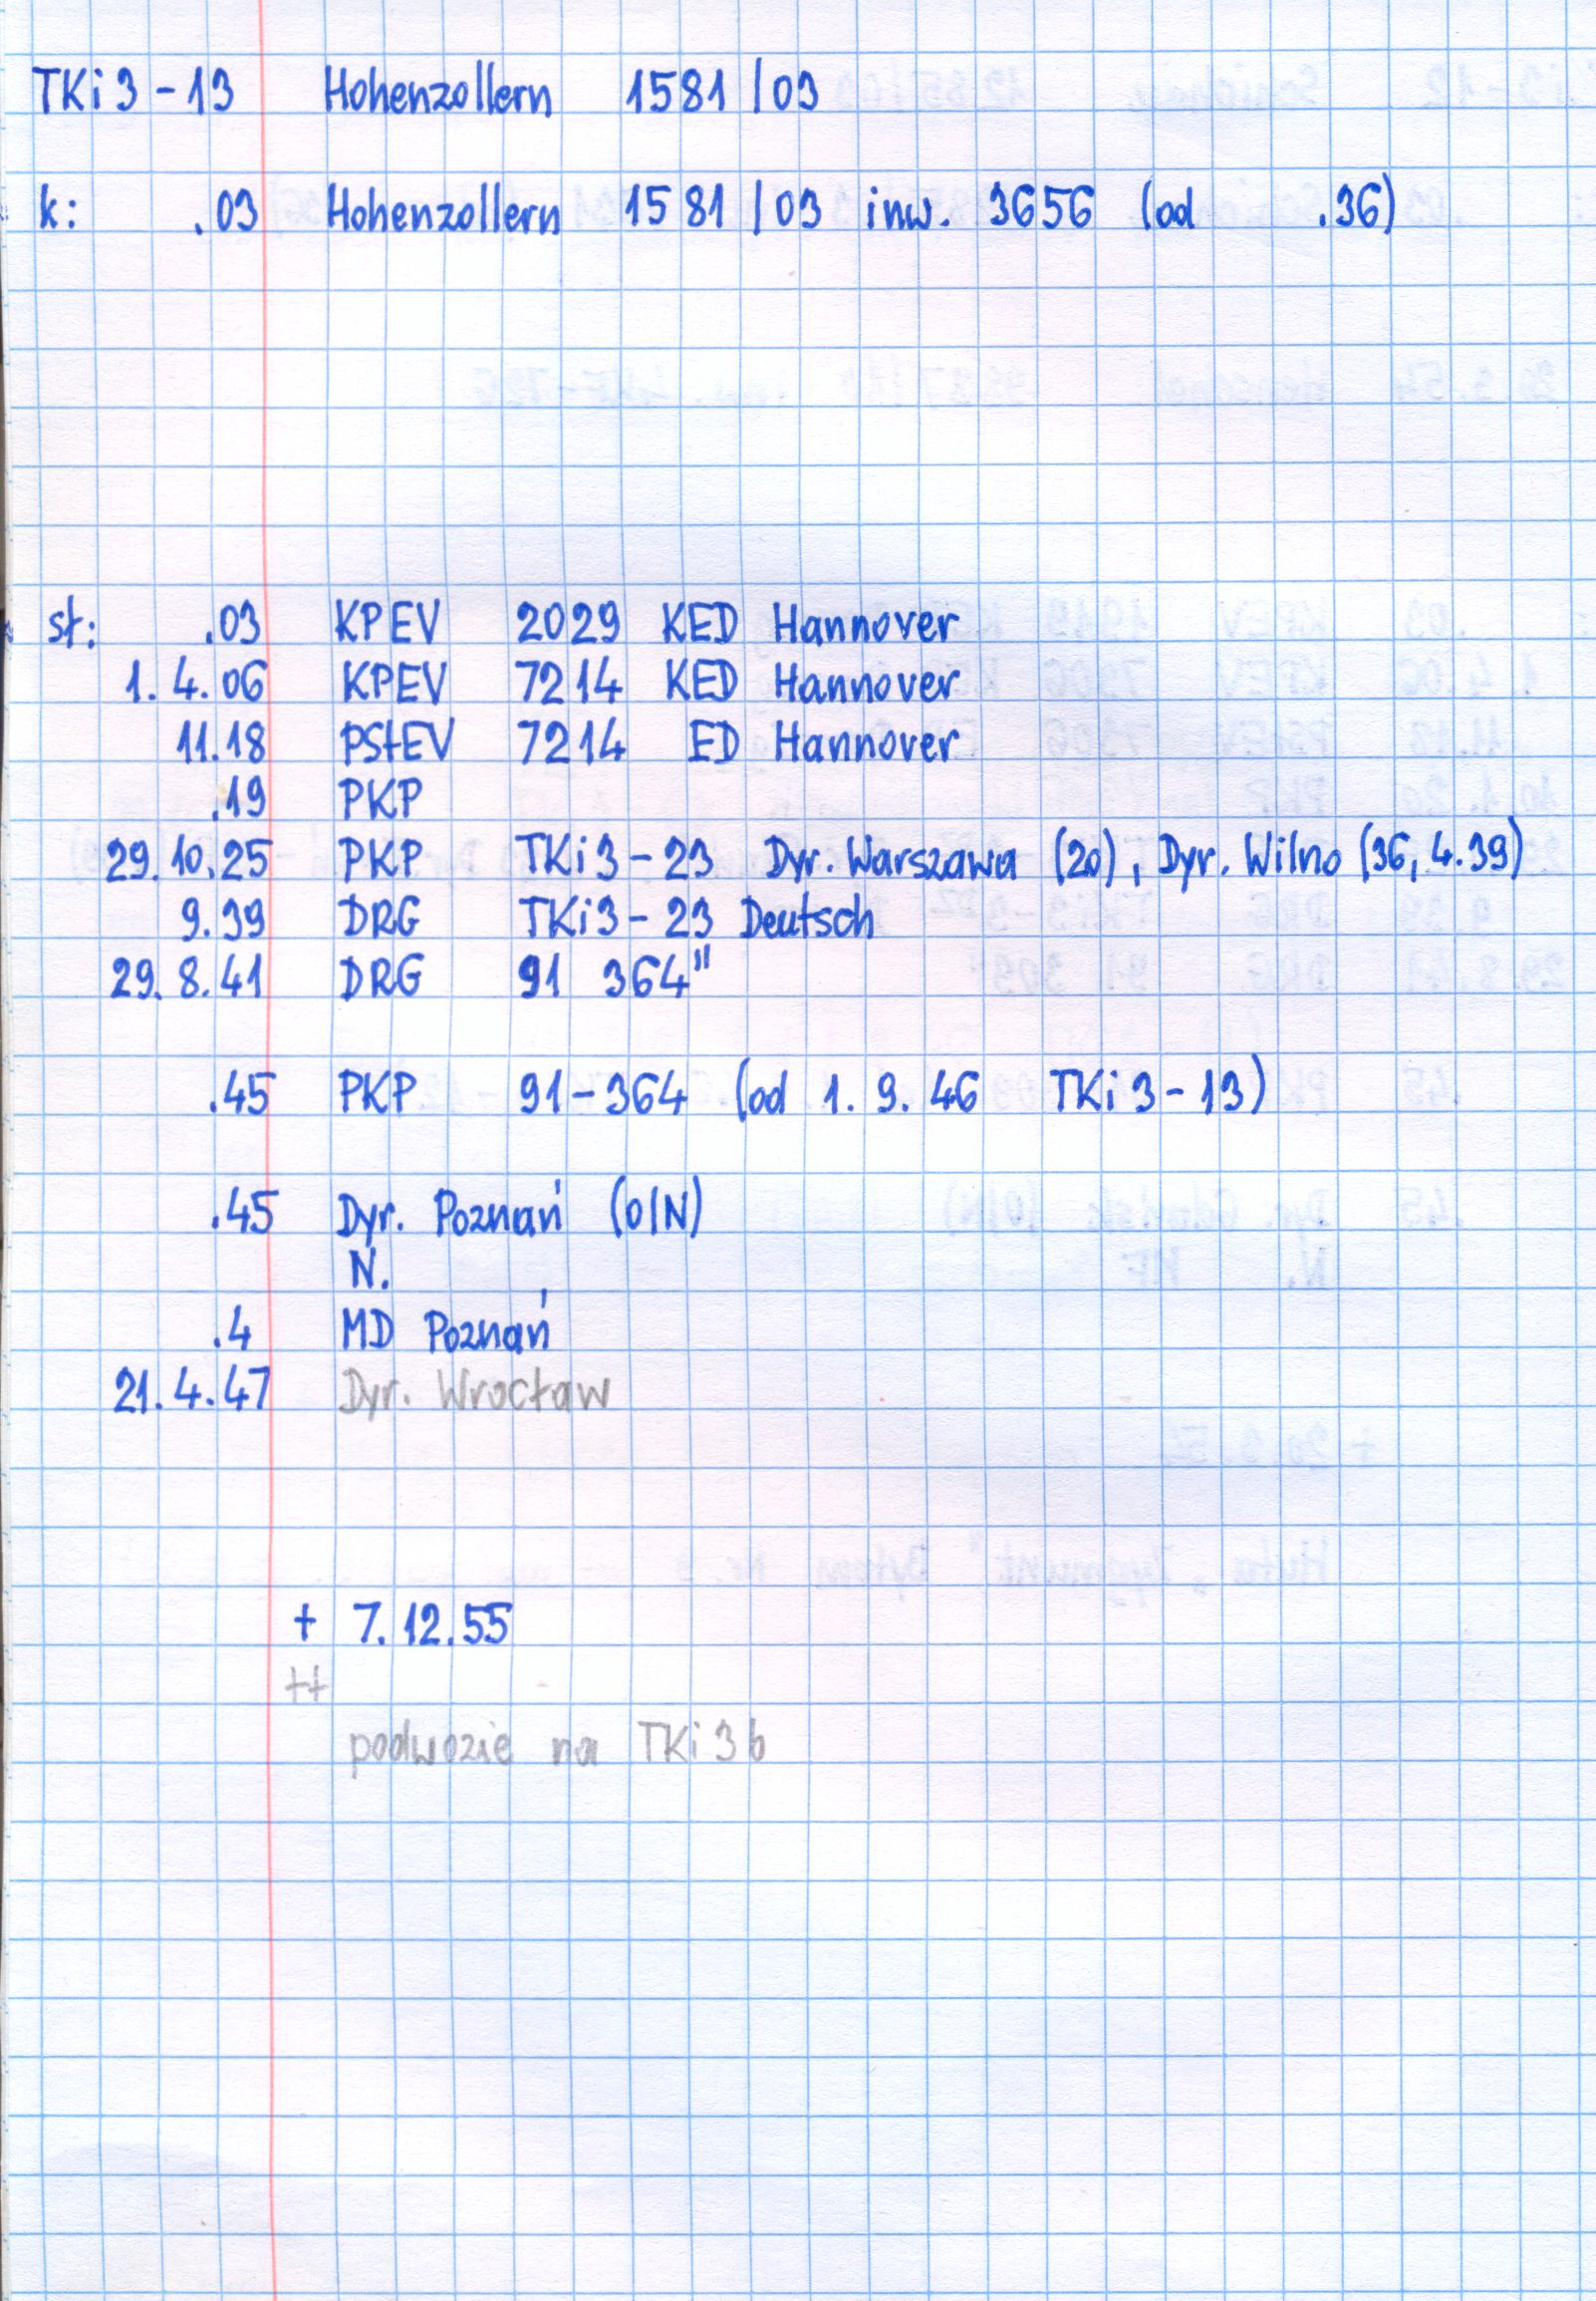 TKi3-13 Hohenzollern 1581/03
k: .03 Hohenzollern 1581/03 inw. 3656 (od .36)
st: .03 KPEV 2029 KED Hannover
1.4.06 KPEV 7214 KED Hannover
11.18 PStEV 7214 ED Hannover
.19 PKP
29.10.25 PKP TKi3-23 Dyr. Warszawa (20), Dyr. Wilno (36, 4.39)
9.39 DRG TKi3-23 Deutsch
29.8.41 DRG 91 364"
.45 PKP 91-364 (od 1.9.46 TKi3-13)
.45 Dyr. Poznań (O/N)
N.
.4 MD Poznań
21.4.47 Dyr. Wrocław
+ 7.12.55
++
podwozie na TKi3b